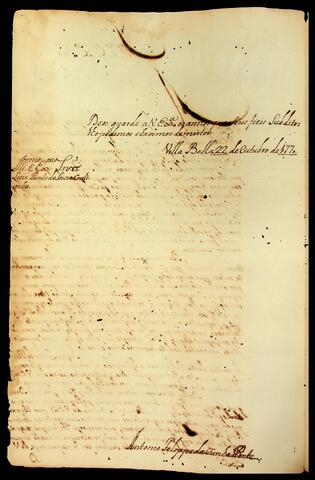 Deos guarde a V. Exª. os annos que seus fieis Subditos
lhe pedimos e havemos de mister
Villa Bella 22 de Outubro de 1770
Illmo. e Exmo. Snr.
Luiz Pinto de Souza Couti
nho
Antonio Felippe da Cunha Ponte